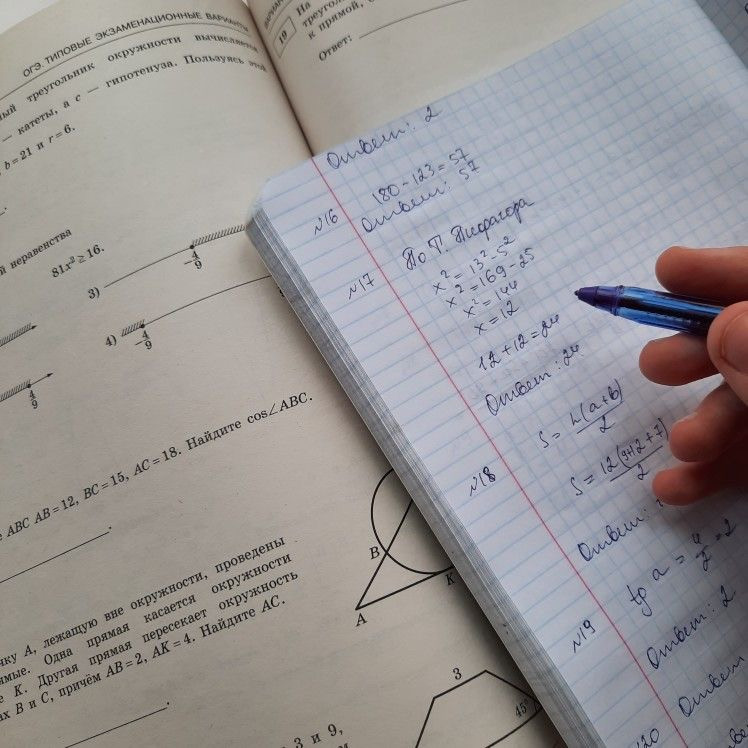 ОГЭ. ТИПОВЫЕ ЭКЗАМЕНАЦИОННЫЕ ВАРИАНТЫ
треугольник окружности вычисляется
— катеты, а c — гипотенуза. Пользуясь этой
b=21 и r=6.
неравенства
81x² ≥ 16.
3)
-4/9
4)
-4/9
4/9
ABC AB=12, BC=15, AC=18. Найдите cos∠ABC.
A, лежащую вне окружности, проведены
Одна прямая касается окружности
K. Другая прямая пересекает окружность
B и C, причём AB=2, AK=4. Найдите AC.
3 и 9,
B
K
A
3
45°
19
На
к прямой,
Ответ:
Ответ: 2
№16
180-123=57
Ответ: 57
№17
По т. Пифагора
x²=13²-5²
x²=169-25
x²=144
x=12
12+12=24
Ответ: 24
№18
S=h(a+b)/2
Ответ:
№19
tg a=4/2=2
Ответ: 2